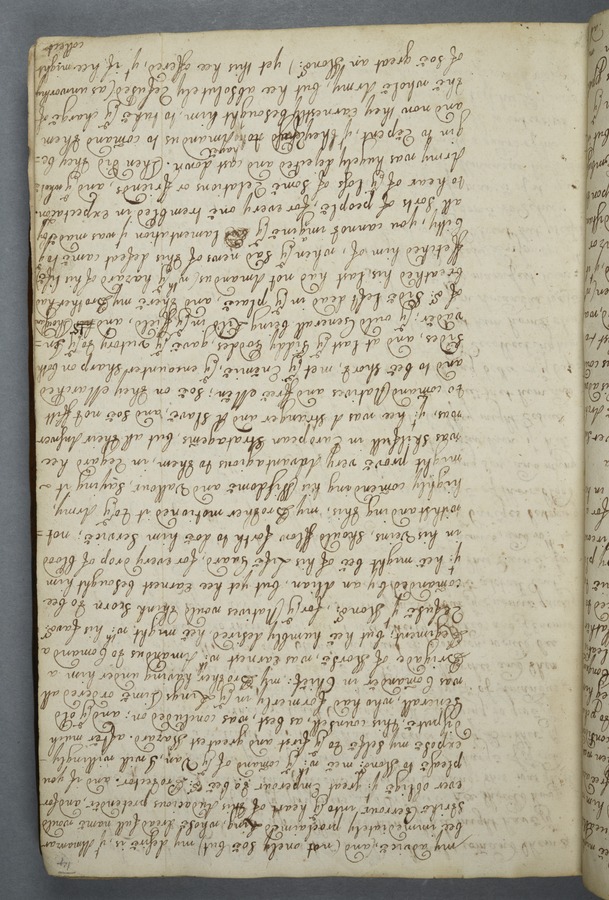 my advice, and (not onely soe but) my desire is, yt Amomar
bee immediately proclaimed King, whose dreadfull name would
strike terrour into ye heart of this Audacious pretender and for
ever oblige ye great Emperour to bee Sr Protector; and if you
please to Honor mee wt ye comand of ye van, I will willingly
expose my selfe to ye first and greatest Hazard after much
dispute, this counsell as best was concluded on; and ye old
Generall who had formerly in ye Kings time ordered all
was Comandr in Chief; my Brother having under him a
Brigade of Horse, was Earnest wt Amandus to Comand a
Regiment, but hee humbly desired hee might wt his favor
Refuse yt Honor, for, ye Natives would think scorn to bee
comanded by an Alian, but yet hee Earnest besought him
yt hee might bee of his Life Guard, for every drop of blood
in his Veins, should flow forth to doe him service; not=
withstanding this, my Brother motioned it to ye Army,
highly comending his Wisdome and Vallour, saying it
might prove very Advantagious to them in regard hee
was skilfull in European Stratagems but all their Answer
was, yt hee was A stranger and A slave and soe not fitt
to comand Natives and free Men; soe on they Marched
and to bee short met ye Enimie, ye encounter sharp on both
sides and at last ye Giddy Godes gave ye Victory to ye In=
vader; ye ould Generall being kild, in ye Field and
of Sr side left dead in ye place, and there my Brother had
breathed his last had not Amandus wt ye hazard of his life
Fetched him of, when ye sad news of this defeat came to ye
Citty, yt you cannot imagine ye Lamentation yt was made by
all sorts of people, for every one trembled in expectation
to hear of ye loss of some Relations or friends, and ye whole
Army was hugely dejected and cast down. Then did they be=
gin to repent yt they had not sought Amandus to comand them
and now they earnestly besought him to take ye charge of
the whole Army, but hee absolutely refused (as unworthy
of soe great an Honor) yet this hee offered, yt if hee might
collect